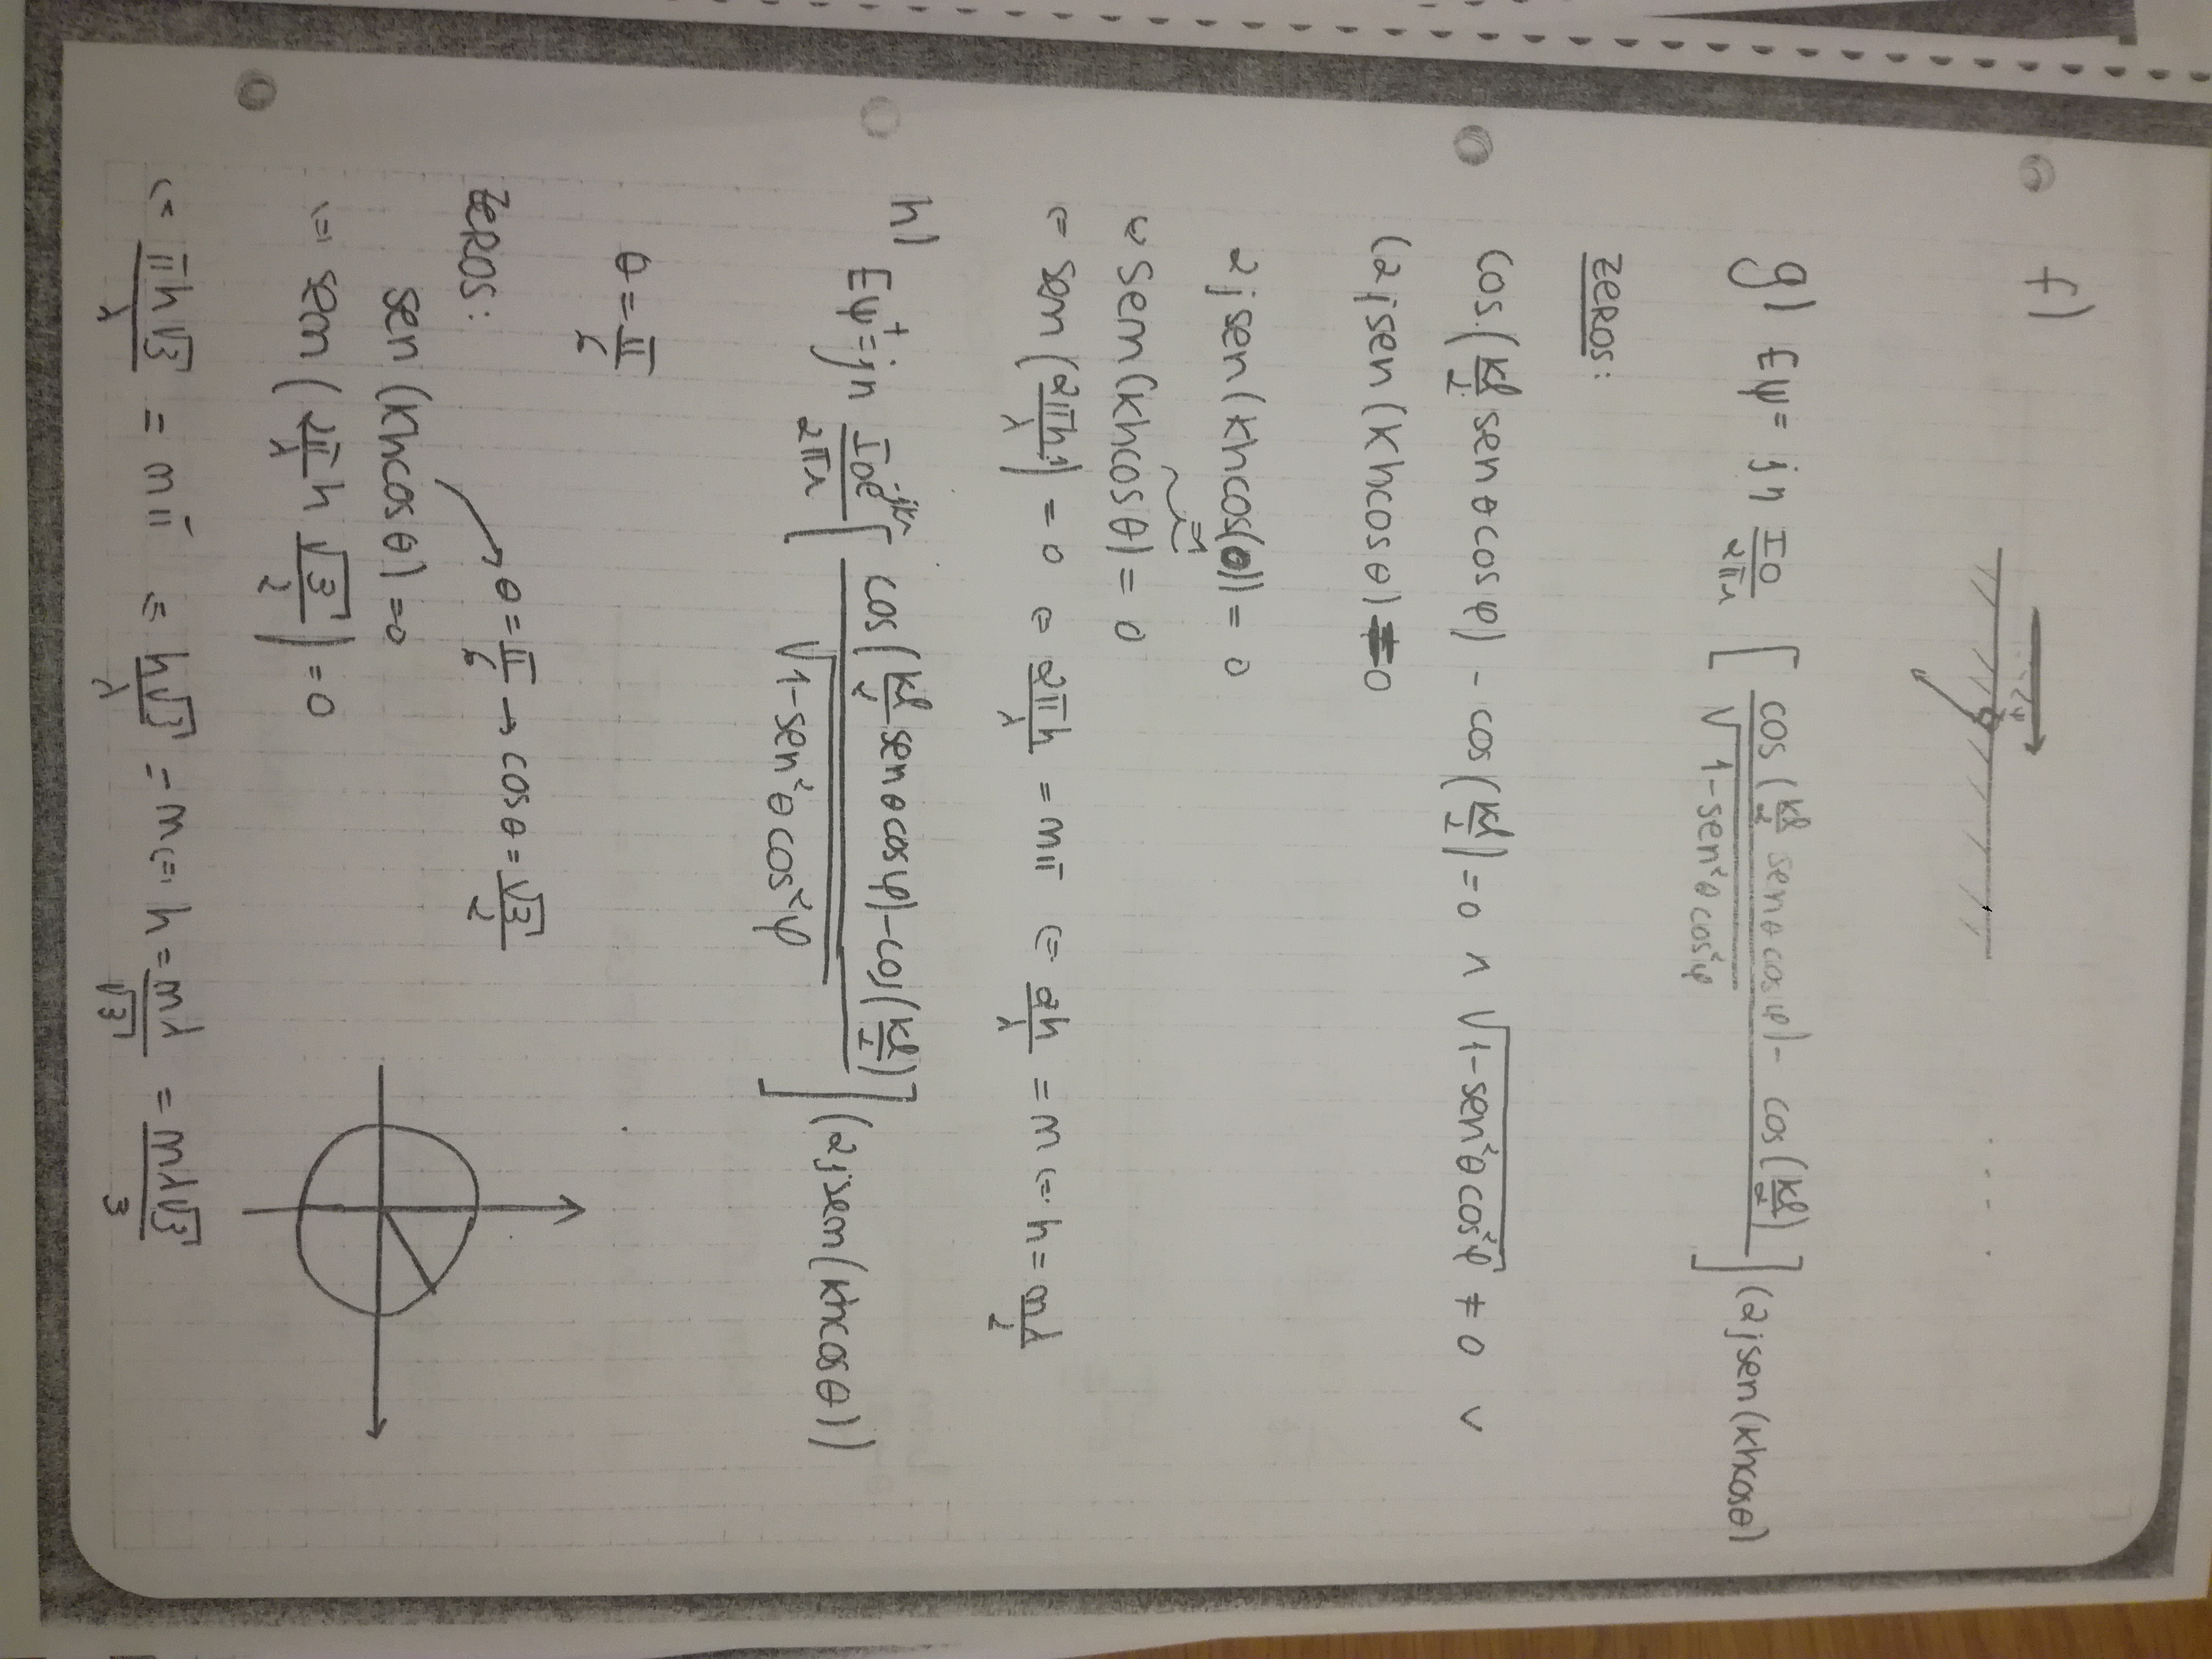 f)
ψ
g) Eψ = jη I0/2πr [ cos(kl/2 senθcosφ) - cos(kl/2) / √(1-sen²θcos²φ) ] (2jsen(khcosθ)
ZEROS:
cos(kl/2 senθcosφ) - cos(kl/2) = 0 ∧ √(1-sen²θcos²φ) ≠ 0 ∨
(2jsen(khcosθ) = 0
2jsen(khcos(0)) = 0
=1
⇔ sem(khcosθ) = 0
⇔ sen(2πh1/λ) = 0 ⇔ 2πh/λ = mπ ⇔ 2h/λ = m ⇔ h = mλ/2
h) Eψ⁺ = jη I0e^-jkr/2πr [ cos(kl/2 senθcosφ) - cos(kl/2) / √(1-sen²θcos²φ) ] (2jsem(khcosθ))
θ = π/6
ZEROS: θ = π/6 → cosθ = √3/2
sen(khcosθ) = 0
⇔ sem(2π/λ h √3/2) = 0
⇔ πh√3/λ = mπ ⇔ h√3/λ = m ⇔ h = mλ/√3 = mλ√3/3